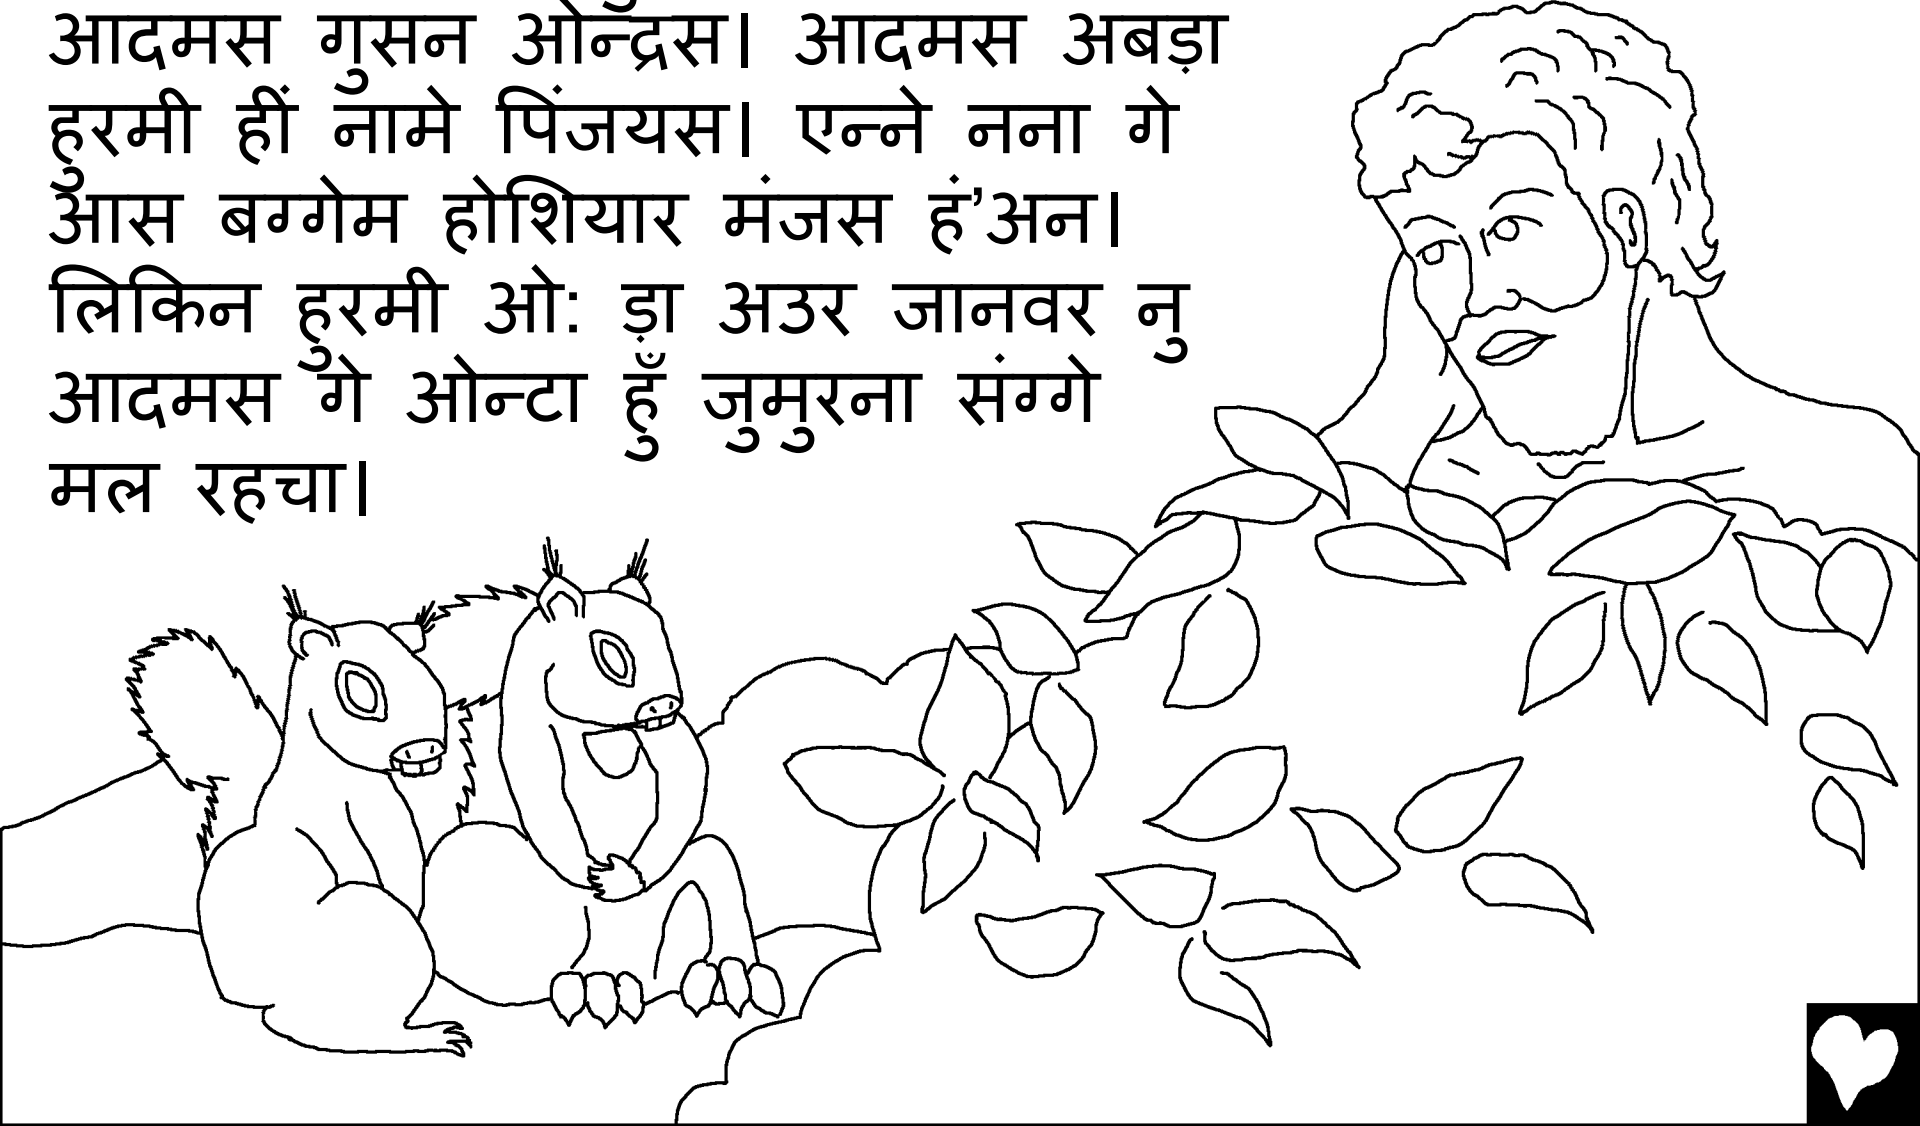 आदमस गुसन ओन्द्रस। आदमस अबड़ा
हुरमी हीं नामे पिंजयस। एन्ने नना गे
आस बग्गेम होशियार मंजस हं’अन।
लिकिन हुरमी ओः ड़ा अउर जानवर नु
आदमस गे ओन्टा हुँ जुमुरना संग्गे
मल रहचा।